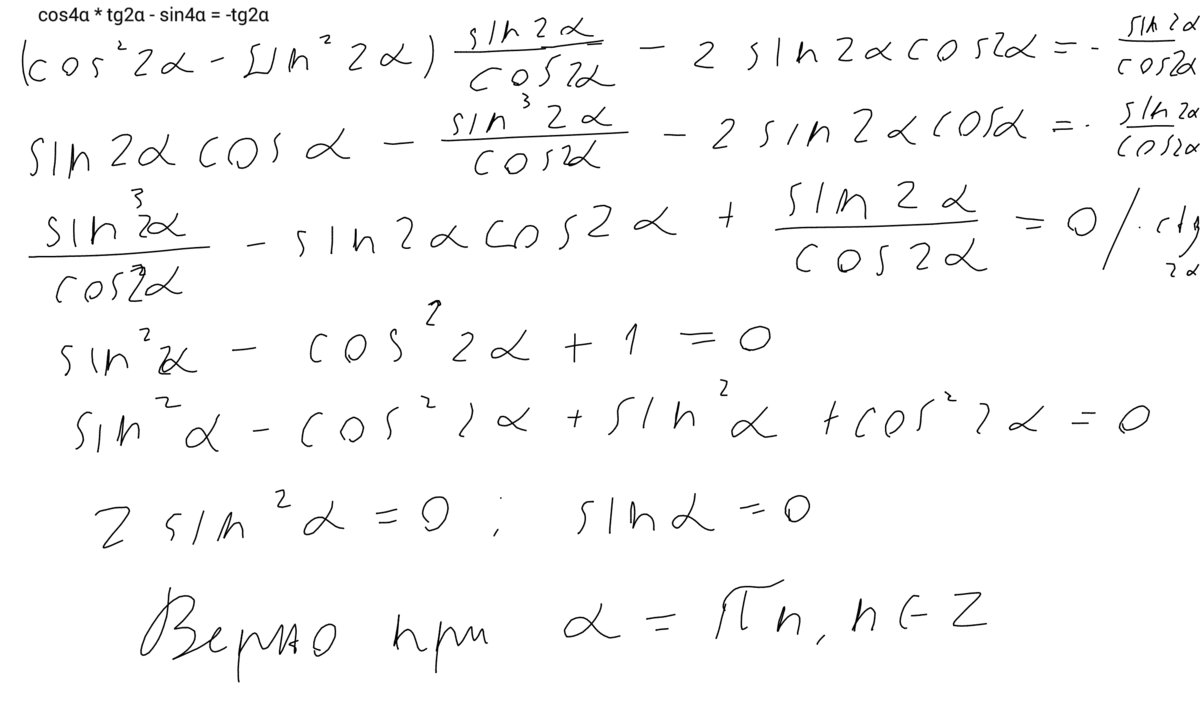 cos4a * tg2a - sin4a = -tg2a
(cos² 2α - sin² 2α) sin 2α / cos 2α - 2 sin 2α cos 2α = - sin 2α / cos 2α
sin 2α cos α - sin³ 2α / cos 2α - 2 sin 2α cos α = - sin 2α / cos 2α
sin³ 2α / cos 2α - sin 2α cos 2α + sin 2α / cos 2α = 0 / · ctg 2α
sin² 2α - cos² 2α + 1 = 0
sin² α - cos² 2α + sin² α + cos² 2α = 0
2 sin² α = 0 ; sin α = 0
Верно при α = πn, n ∈ Z